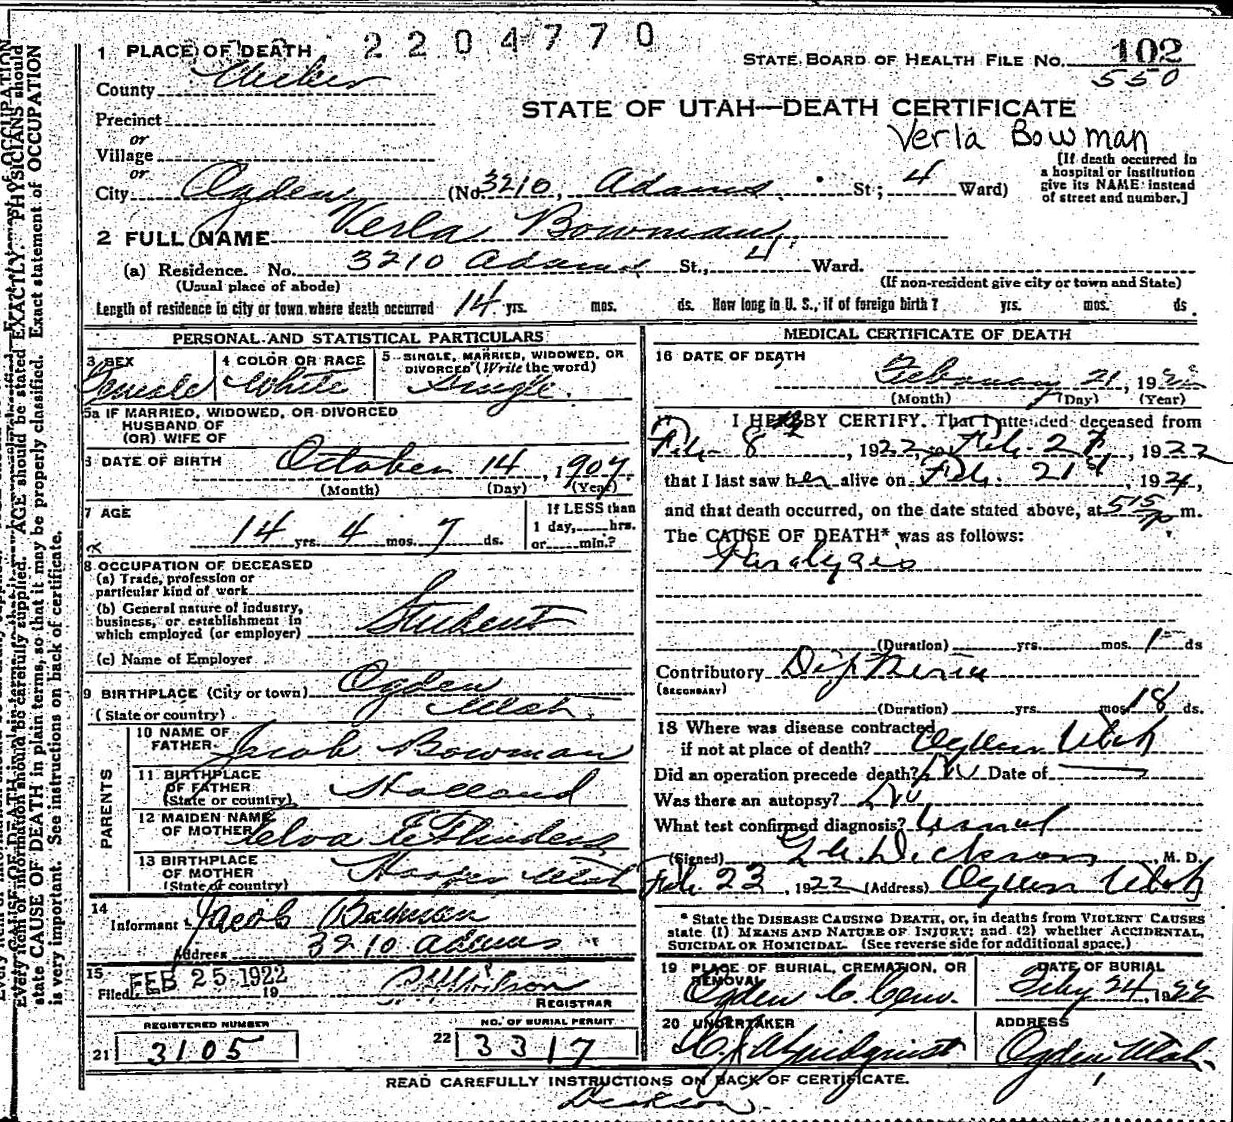 2204770
1 PLACE OF DEATH
STATE BOARD OF HEALTH FILE No. 102
550
County Weber
STATE OF UTAH—DEATH CERTIFICATE
Precinct
Verla Bowman
or
Village
or
City Ogden (No. 3210, Adams St; 4 Ward)
[If death occurred in
a hospital or institution
give its NAME instead
of street and number.]
2 FULL NAME Verla Bowman
(a) Residence. No. 3210 Adams St., 4 Ward.
(Usual place of abode)
(If non-resident give city or town and State)
Length of residence in city or town where death occurred 14 yrs. mos. ds. How long in U. S., if of foreign birth? yrs. mos. ds.
PERSONAL AND STATISTICAL PARTICULARS
3 SEX Female
4 COLOR OR RACE White
5 SINGLE, MARRIED, WIDOWED, OR
DIVORCED (Write the word)
Single.
5a IF MARRIED, WIDOWED, OR DIVORCED
HUSBAND OF
(OR) WIFE OF
6 DATE OF BIRTH October 14, 1907
(Month) (Day) (Year)
7 AGE
14 yrs. 4 mos. 7 ds.
If LESS than
1 day, hrs.
or min.?
8 OCCUPATION OF DECEASED
(a) Trade, profession or
particular kind of work
(b) General nature of industry,
business, or establishment in
which employed (or employer)
Student
(c) Name of Employer
9 BIRTHPLACE (City or town) Ogden
(State or country) Utah
PARENTS
10 NAME OF
FATHER Jacob Bowman
11 BIRTHPLACE
OF FATHER
(State or country) Holland
12 MAIDEN NAME
OF MOTHER Elva E Flinders
13 BIRTHPLACE
OF MOTHER
(State or country) Hooper Utah
14
Informant Jacob Bowman
Address 3210 Adams
15
Filed FEB 25 1922 19
REGISTRAR
REGISTERED NUMBER
21 3105
NO. OF BURIAL PERMIT
22 3317
MEDICAL CERTIFICATE OF DEATH
16 DATE OF DEATH
February 21, 1922
(Month) (Day) (Year)
17 I HEREBY CERTIFY. That I attended deceased from
Feb. 8, 1922, to Feb. 21, 1922
that I last saw her alive on Feb. 21st, 192
and that death occurred, on the date stated above, at 515 p m.
The CAUSE OF DEATH* was as follows:
Paralysis
(Duration) yrs. mos. 1 ds
Contributory Diptheria
(SECONDARY)
(Duration) yrs. mos. 18 ds.
18 Where was disease contracted
if not at place of death? Ogden Utah
Did an operation precede death? No Date of
Was there an autopsy? No
What test confirmed diagnosis? Usual
(Signed) Dickson, M. D.
Feb. 23, 1922 (Address) Ogden Utah
* State the DISEASE CAUSING DEATH, or, in deaths from VIOLENT CAUSES
state (1) MEANS AND NATURE OF INJURY; and (2) whether ACCIDENTAL,
SUICIDAL OR HOMICIDAL. (See reverse side for additional space.)
19 PLACE OF BURIAL, CREMATION, OR
REMOVAL
Ogden C. Cem.
DATE OF BURIAL
Feby 24, 1922
20 UNDERTAKER
Lindquist
ADDRESS
Ogden Utah.
READ CAREFULLY INSTRUCTIONS ON BACK OF CERTIFICATE.
Dickson
AGE should be stated EXACTLY. PHYSICIANS should
state CAUSE OF DEATH in plain terms, so that it may be properly classified. Exact statement of OCCUPATION
is very important. See instructions on back of certificate.